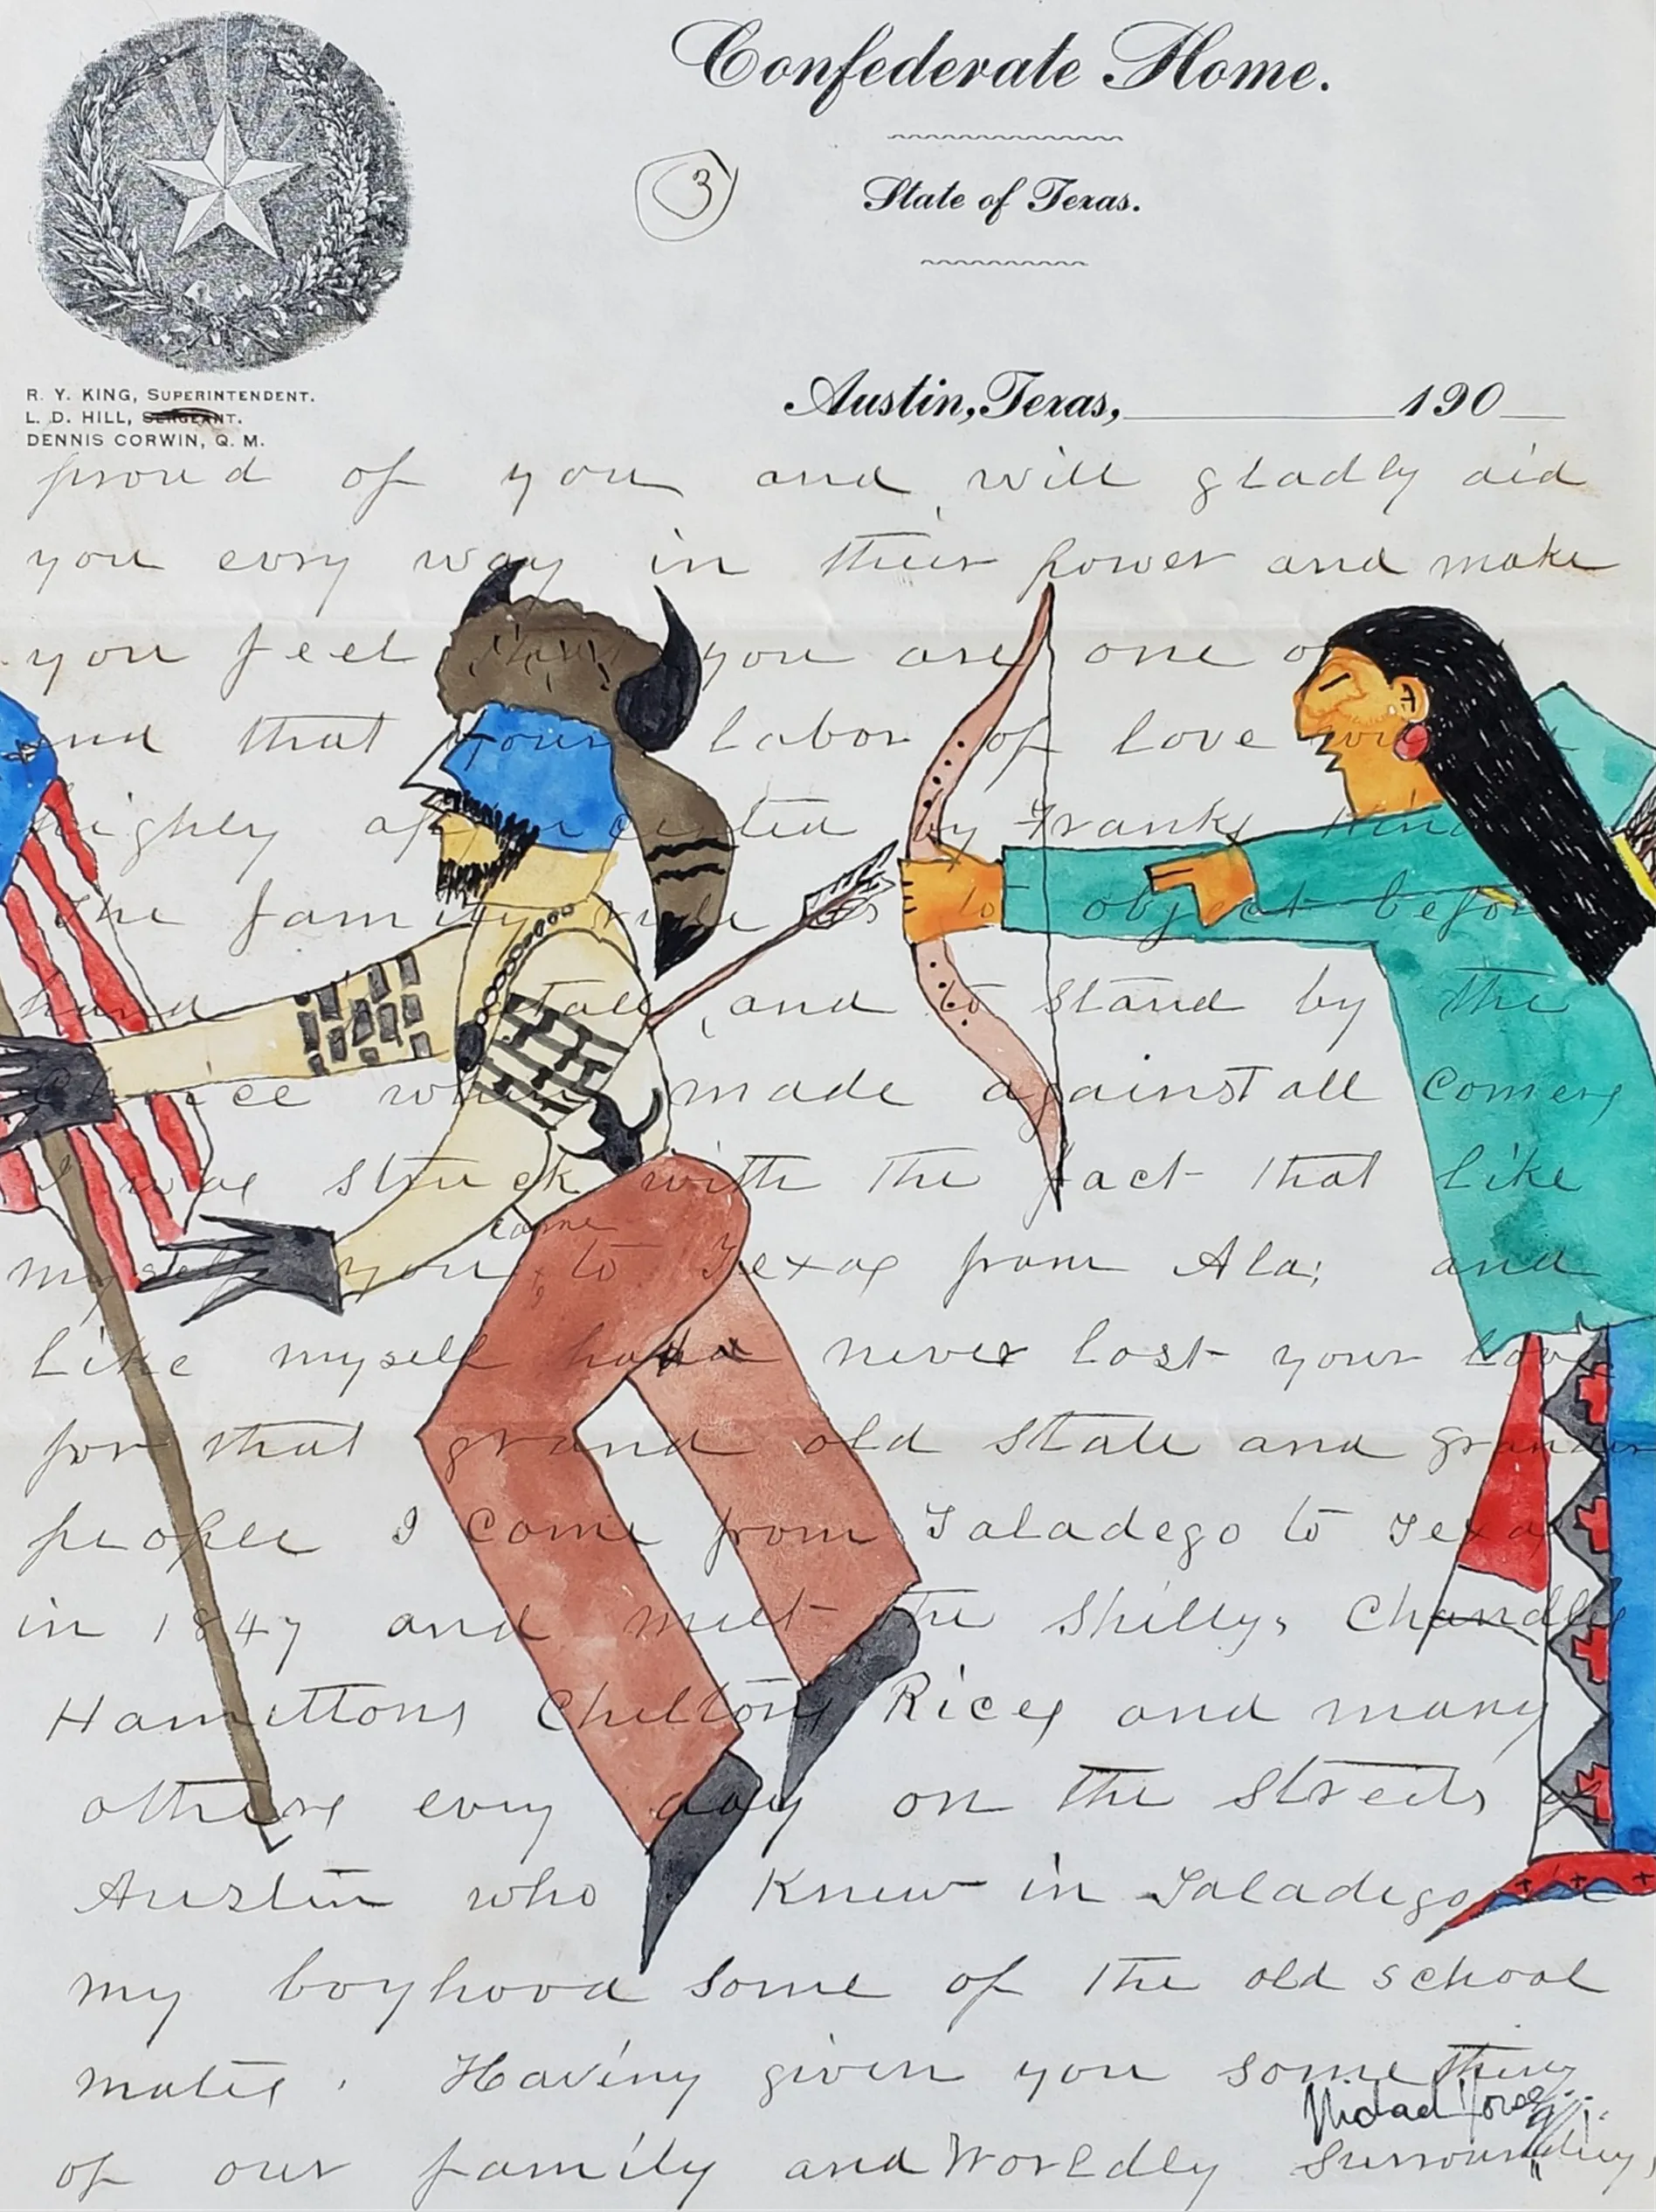 Confederate Home.
3
State of Texas.
R. Y. KING, SUPERINTENDENT.
L. D. HILL, SERGEANT.
DENNIS CORWIN, Q. M.
Austin, Texas, 190
proud of you and will gladly aid
you evry way in their power and make
you feel that you are one
and that your labor of love
highly by Franks
The family rule is to object
hand and to stand by the
choice when made against all comers
I was struck with the fact that like
came
myself you to Texas from Ala; and
like myself have never lost your love
for that grand old State and grander
people I come from Taladego to Texas
in 1847 and meet the Shillys Chandlers
Hamittons Chiltons Rices and many
others evry day on the streets of
Austin who knew in Taladego
my boyhood some of the old school
mates. Having given you something
Michael Horse
of our family and Worldly surroundings